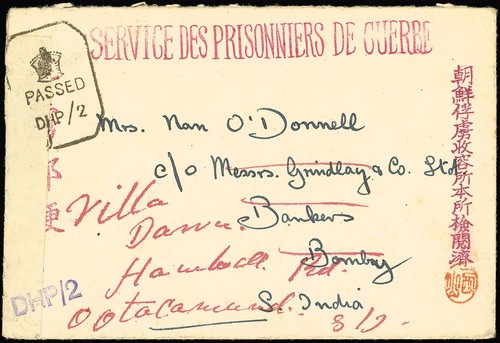 SERVICE DES PRISONNIERS DE GUERRE
PASSED
DHP/2
Mrs. Nan O'Donnell
c/o Messrs. Grindlay & Co. Ltd
Bankers
Bombay
S. India
Villa
Hd.
Ootacamund.
郵便
DHP/2
朝鮮俘虜收容所本所検閲濟